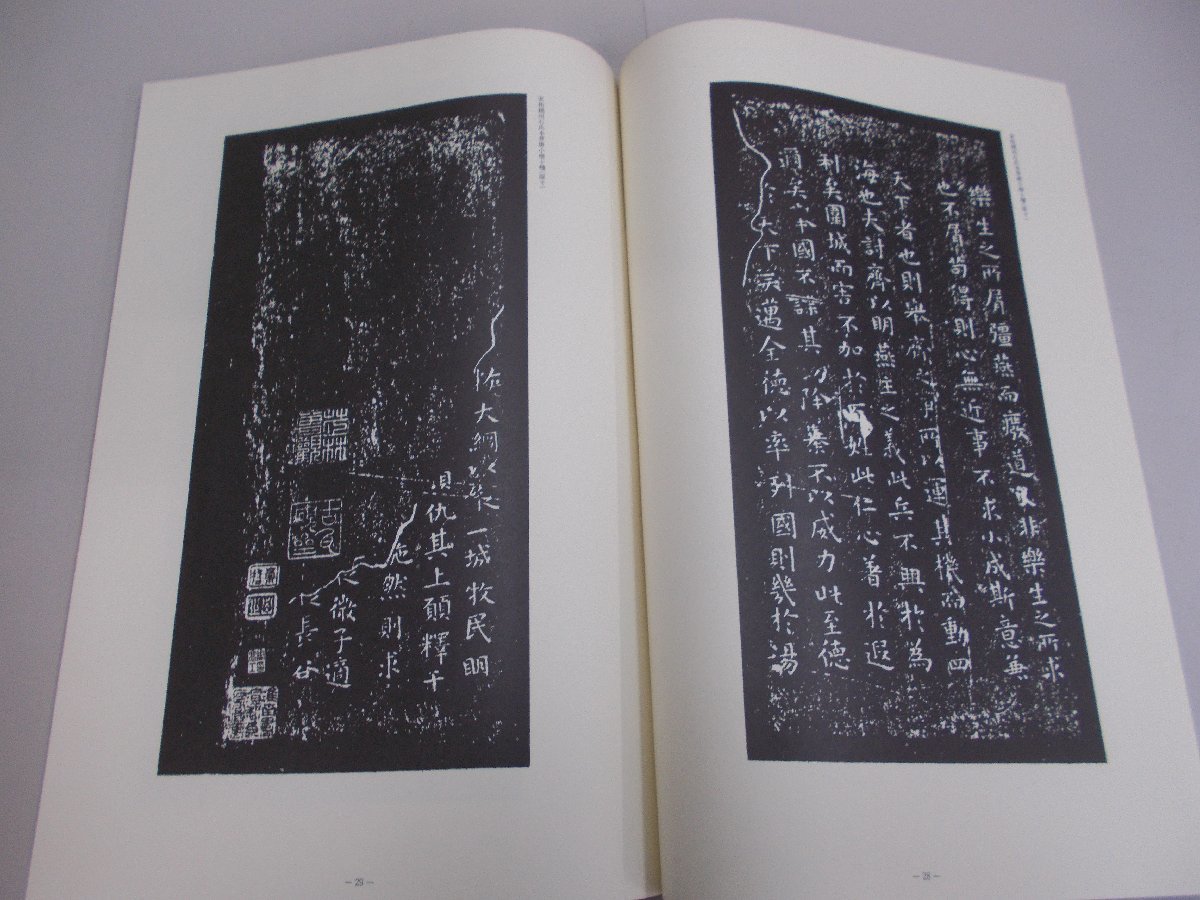 樂生之所屑彊燕而廢道又非樂生之所求
也不屑苟得則心無近事不求小成斯意兼
天下者也則舉齊之 所以運其機而動四
海也夫討齊以明燕主之義此兵不興於為
利矣圍城而害不加於百姓此仁心著於遐
邇矣 國不謀其功除暴不以威力此至德
於天下矣邁全德以率列國則幾於湯
— 28 —
恢大綱以縱二城牧民明
仇其上願釋干
施然則求
微子適
長容
— 29 —